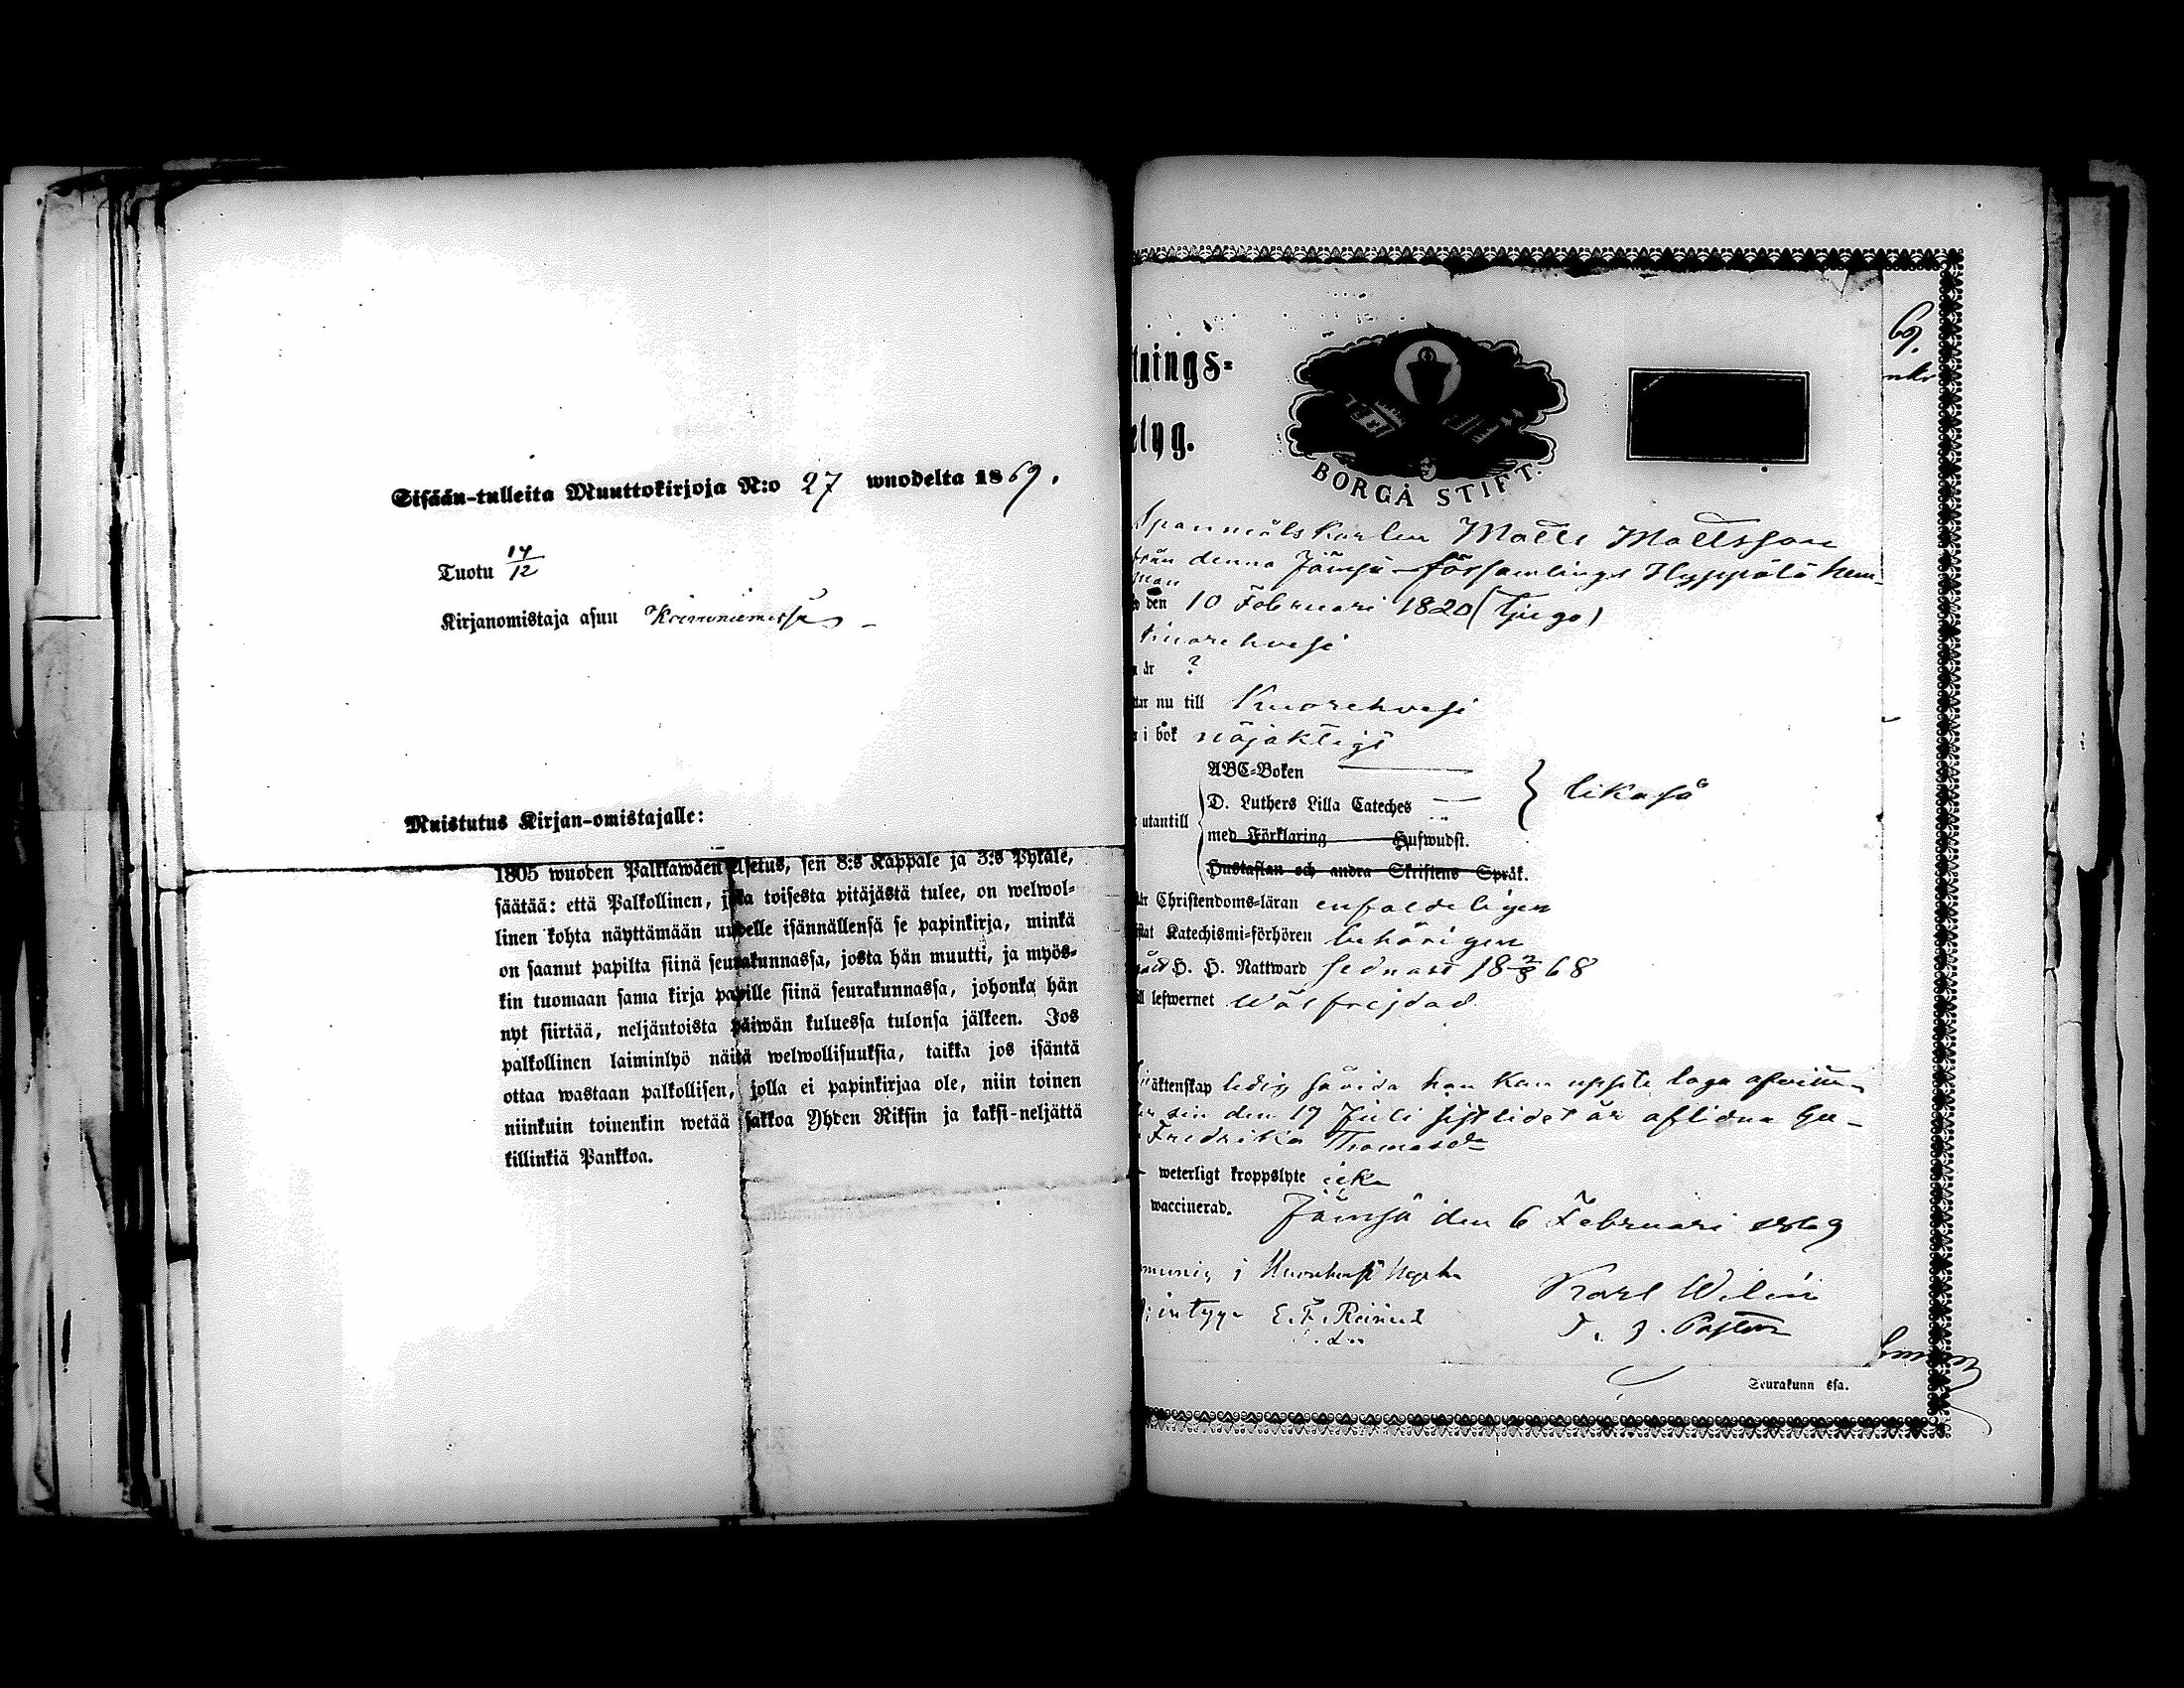 Sisään-tulleita Muuttokirjoja N:o 27 wuodelta 1869.
Tuotu 14/12
Kirjanomistaja asuu
Muistutus Kirjan-omistajalle:
1805 wuoden Palkkawäen Asetus, sen 8:s Kappale ja 3:s Pykäle,
säätää: että Palkollinen, joka toisesta pitäjästä tulee, on welwol-
linen kohta näyttämään uudelle isännällensä se papinkirja, minkä
on saanut papilta siinä seurakunnassa, josta hän muutti, ja myös-
kin tuomaan sama kirja papille siinä seurakunnassa, johonka hän
nyt siirtää, neljäntoista päiwän kuluessa tulonsa jälkeen. Jos
palkollinen laiminlyö näitä welwollisuuksia, taikka jos isäntä
ottaa wastaan palkollisen, jolla ei papinkirjaa ole, niin toinen
niinkuin toinenkin wetää sakkoa Yhden Riksin ja kaksi-neljättä
killinkiä Pankkoa.
69.
tnings-
etyg.
BORGÅ STIFT.
Spannmålskarlen Matts Mattsson
från denna Jämsä församlings Hyppälä hem-
man
den 10 Februari 1820 (tjugo)
Kuorehvesi
är ?
tar nu till Kuorehvesi
i bok nöjaktigt
ABC-Boken
D. Luthers Lilla Cateches } likaså
utantill
med Förklaring Hufwudst.
Hustaflan och andra Skriftens Språk.
är Christendoms-läran enfaldeligen
stat Katechismi-förhören behörigen
H. H. Nattward sednast 18 2/8 68
ll lefwernet wälfrejdad
äktenskap ledig såvida han kan uppte laga afvittn-
sin den 19 Juli sistlidet år aflidna hu-
Fredrika Thomasdr
weterligt kroppslyte icke
waccinerad.
Jämsä den 6 Februari 1869
i Kuorehvesi
intygar E. F.
Karl Wilén
T. f. Pastor
Seurakunn ssa.